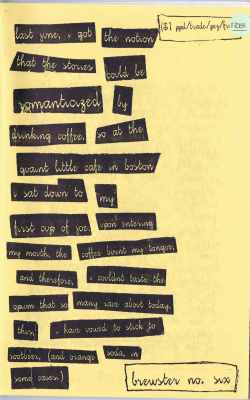 last june, i got the notion
that the stories could be
romanticized by
drinking coffee, so at the
quaint little cafe in boston
i sat down to my
first cup of joe. upon entering
my mouth, the coffee burnt my tongue,
and therefore, i couldn't taste the
opium that so many rave about today.
then, i have vowed to stick to
rootbeer, (and orange soda, in
some cases)
brewster no. six